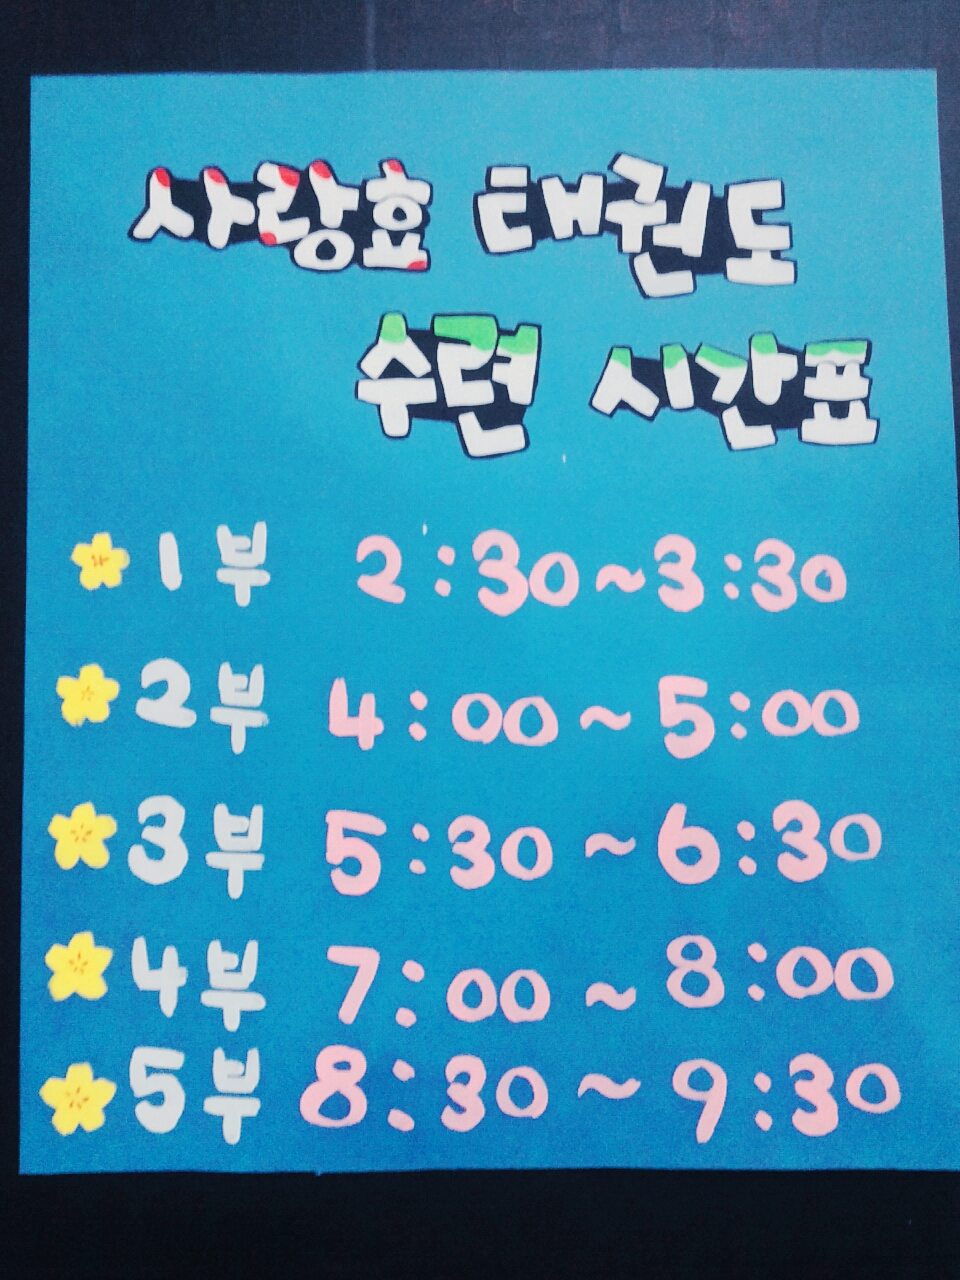 사랑효 태권도
수련 시간표
1부 2:30~3:30
2부 4:00~5:00
3부 5:30~6:30
4부 7:00~8:00
5부 8:30~9:30